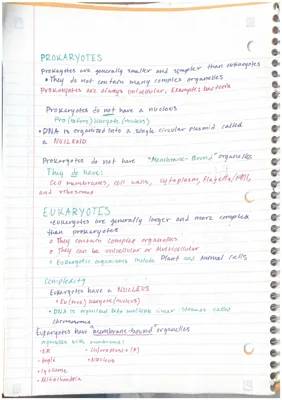 PROKARYOTES
Prokaryotes are generally smaller and simpler than eukaryotes
• They do not contain many complex organelles
Prokaryotes are always unicellular, Examples bacteria
Prokaryotes do not have a nucleus
Pro (before) karyote (nucleus)
• DNA is organized into a single circular plasmid called
a NUCLEOID
Prokaryotes do not have "Membrane-Bound" organelles
They do have:
Cell membranes, cell walls, cytoplasm, flagella/pili,
and ribosomes
EUKARYOTES
• Eukaryotes are generally larger and more complex
than prokaryotes
They contain complex organelles
They can be unicellular or multicellular
Eukaryotic organisms include Plant and Animal cells
Complexity
Eukaryotes have a NUCLEUS
• Eu (true) karyote (nucleus)
• DNA is organized into multiple linear strands called
chromosomes
Eukaryotes have "membrane-bound" organelles
organelles with membranes:
• ER
• Chloroplasts
• Golgi
• Nucleus
• Lysosome
• Mitochondria